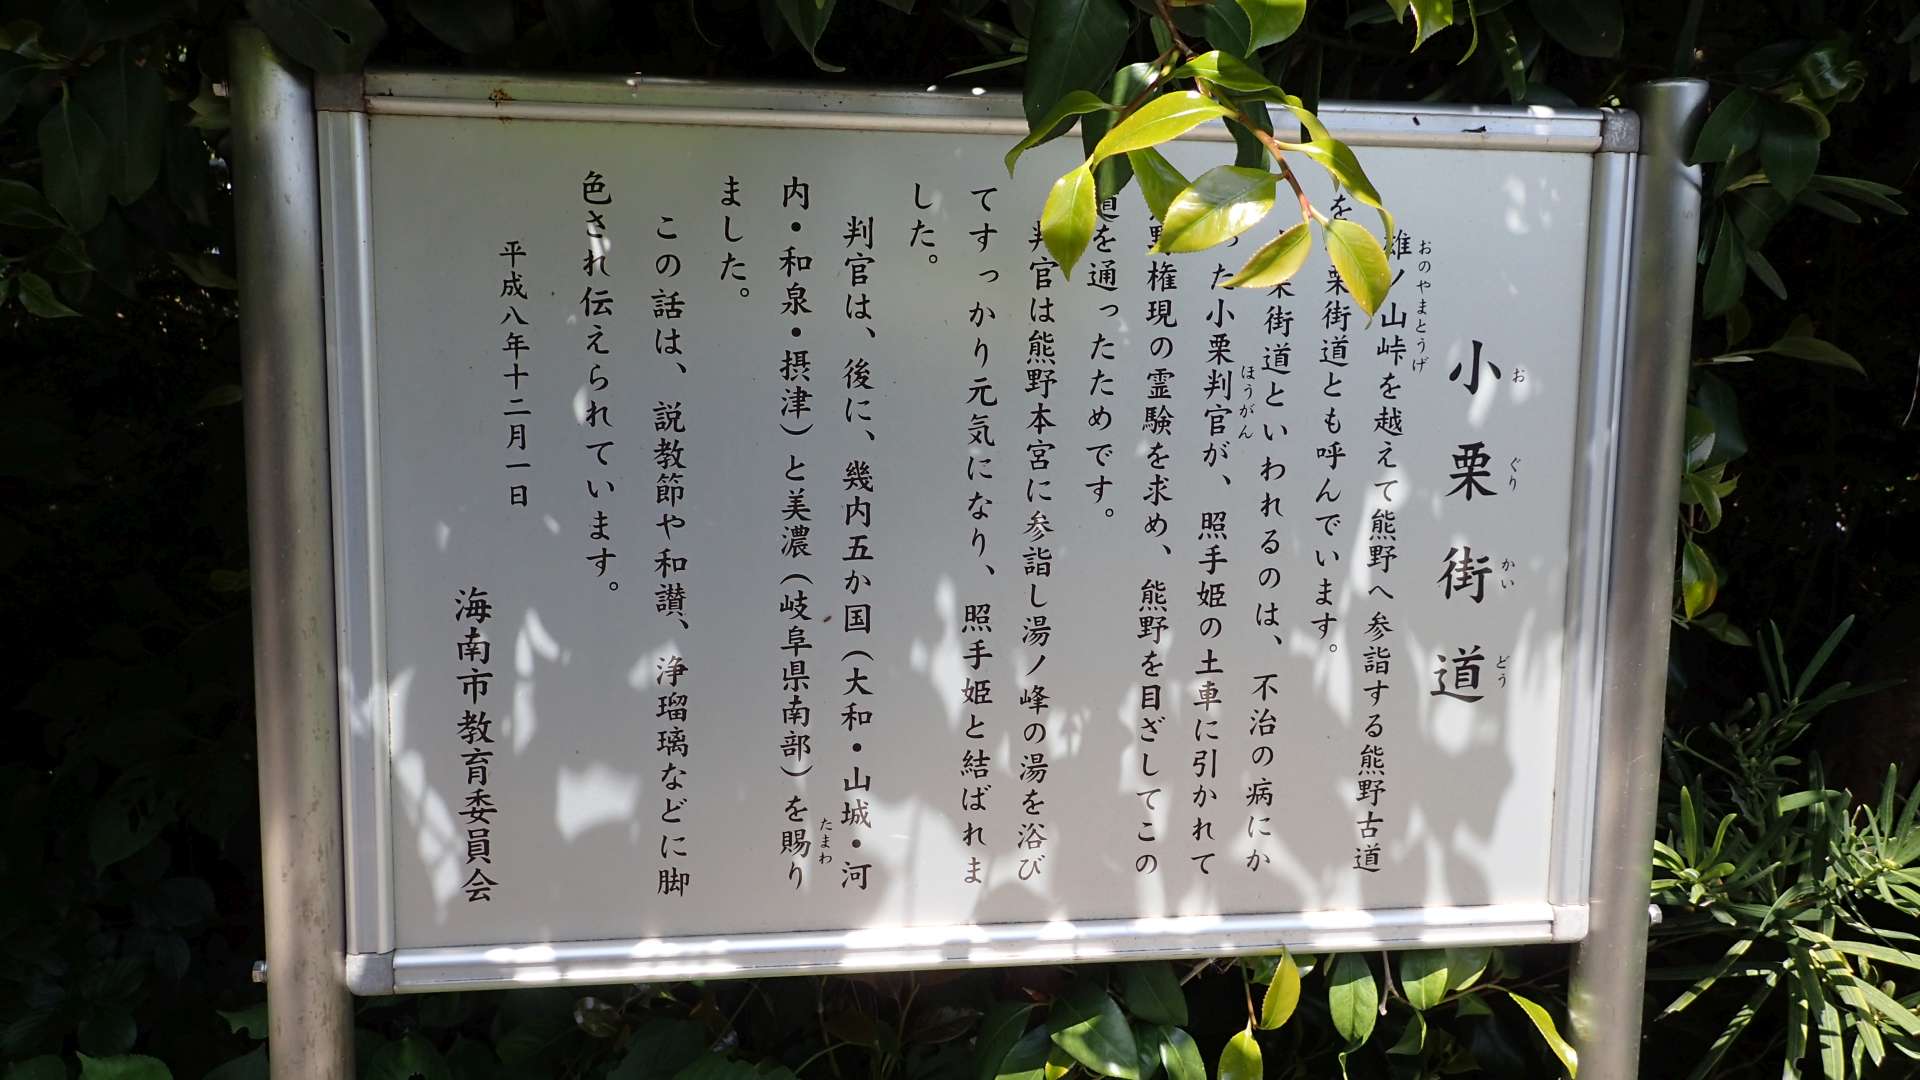 小栗街道
おぐりかいどう
雄ノ山峠を越えて熊野へ参詣する熊野古道
おのやまとうげ
を 栗街道とも呼んでいます。
栗街道といわれるのは、不治の病にか
った小栗判官が、照手姫の土車に引かれて
ほうがん
野権現の霊験を求め、熊野を目ざしてこの
道を通ったためです。
判官は熊野本宮に参詣し湯ノ峰の湯を浴び
てすっかり元気になり、照手姫と結ばれま
した。
判官は、後に、幾内五か国(大和・山城・河
内・和泉・摂津)と美濃(岐阜県南部)を賜り
たまわ
ました。
この話は、説教節や和讃、浄瑠璃などに脚
色され伝えられています。
平成八年十二月一日
海南市教育委員会